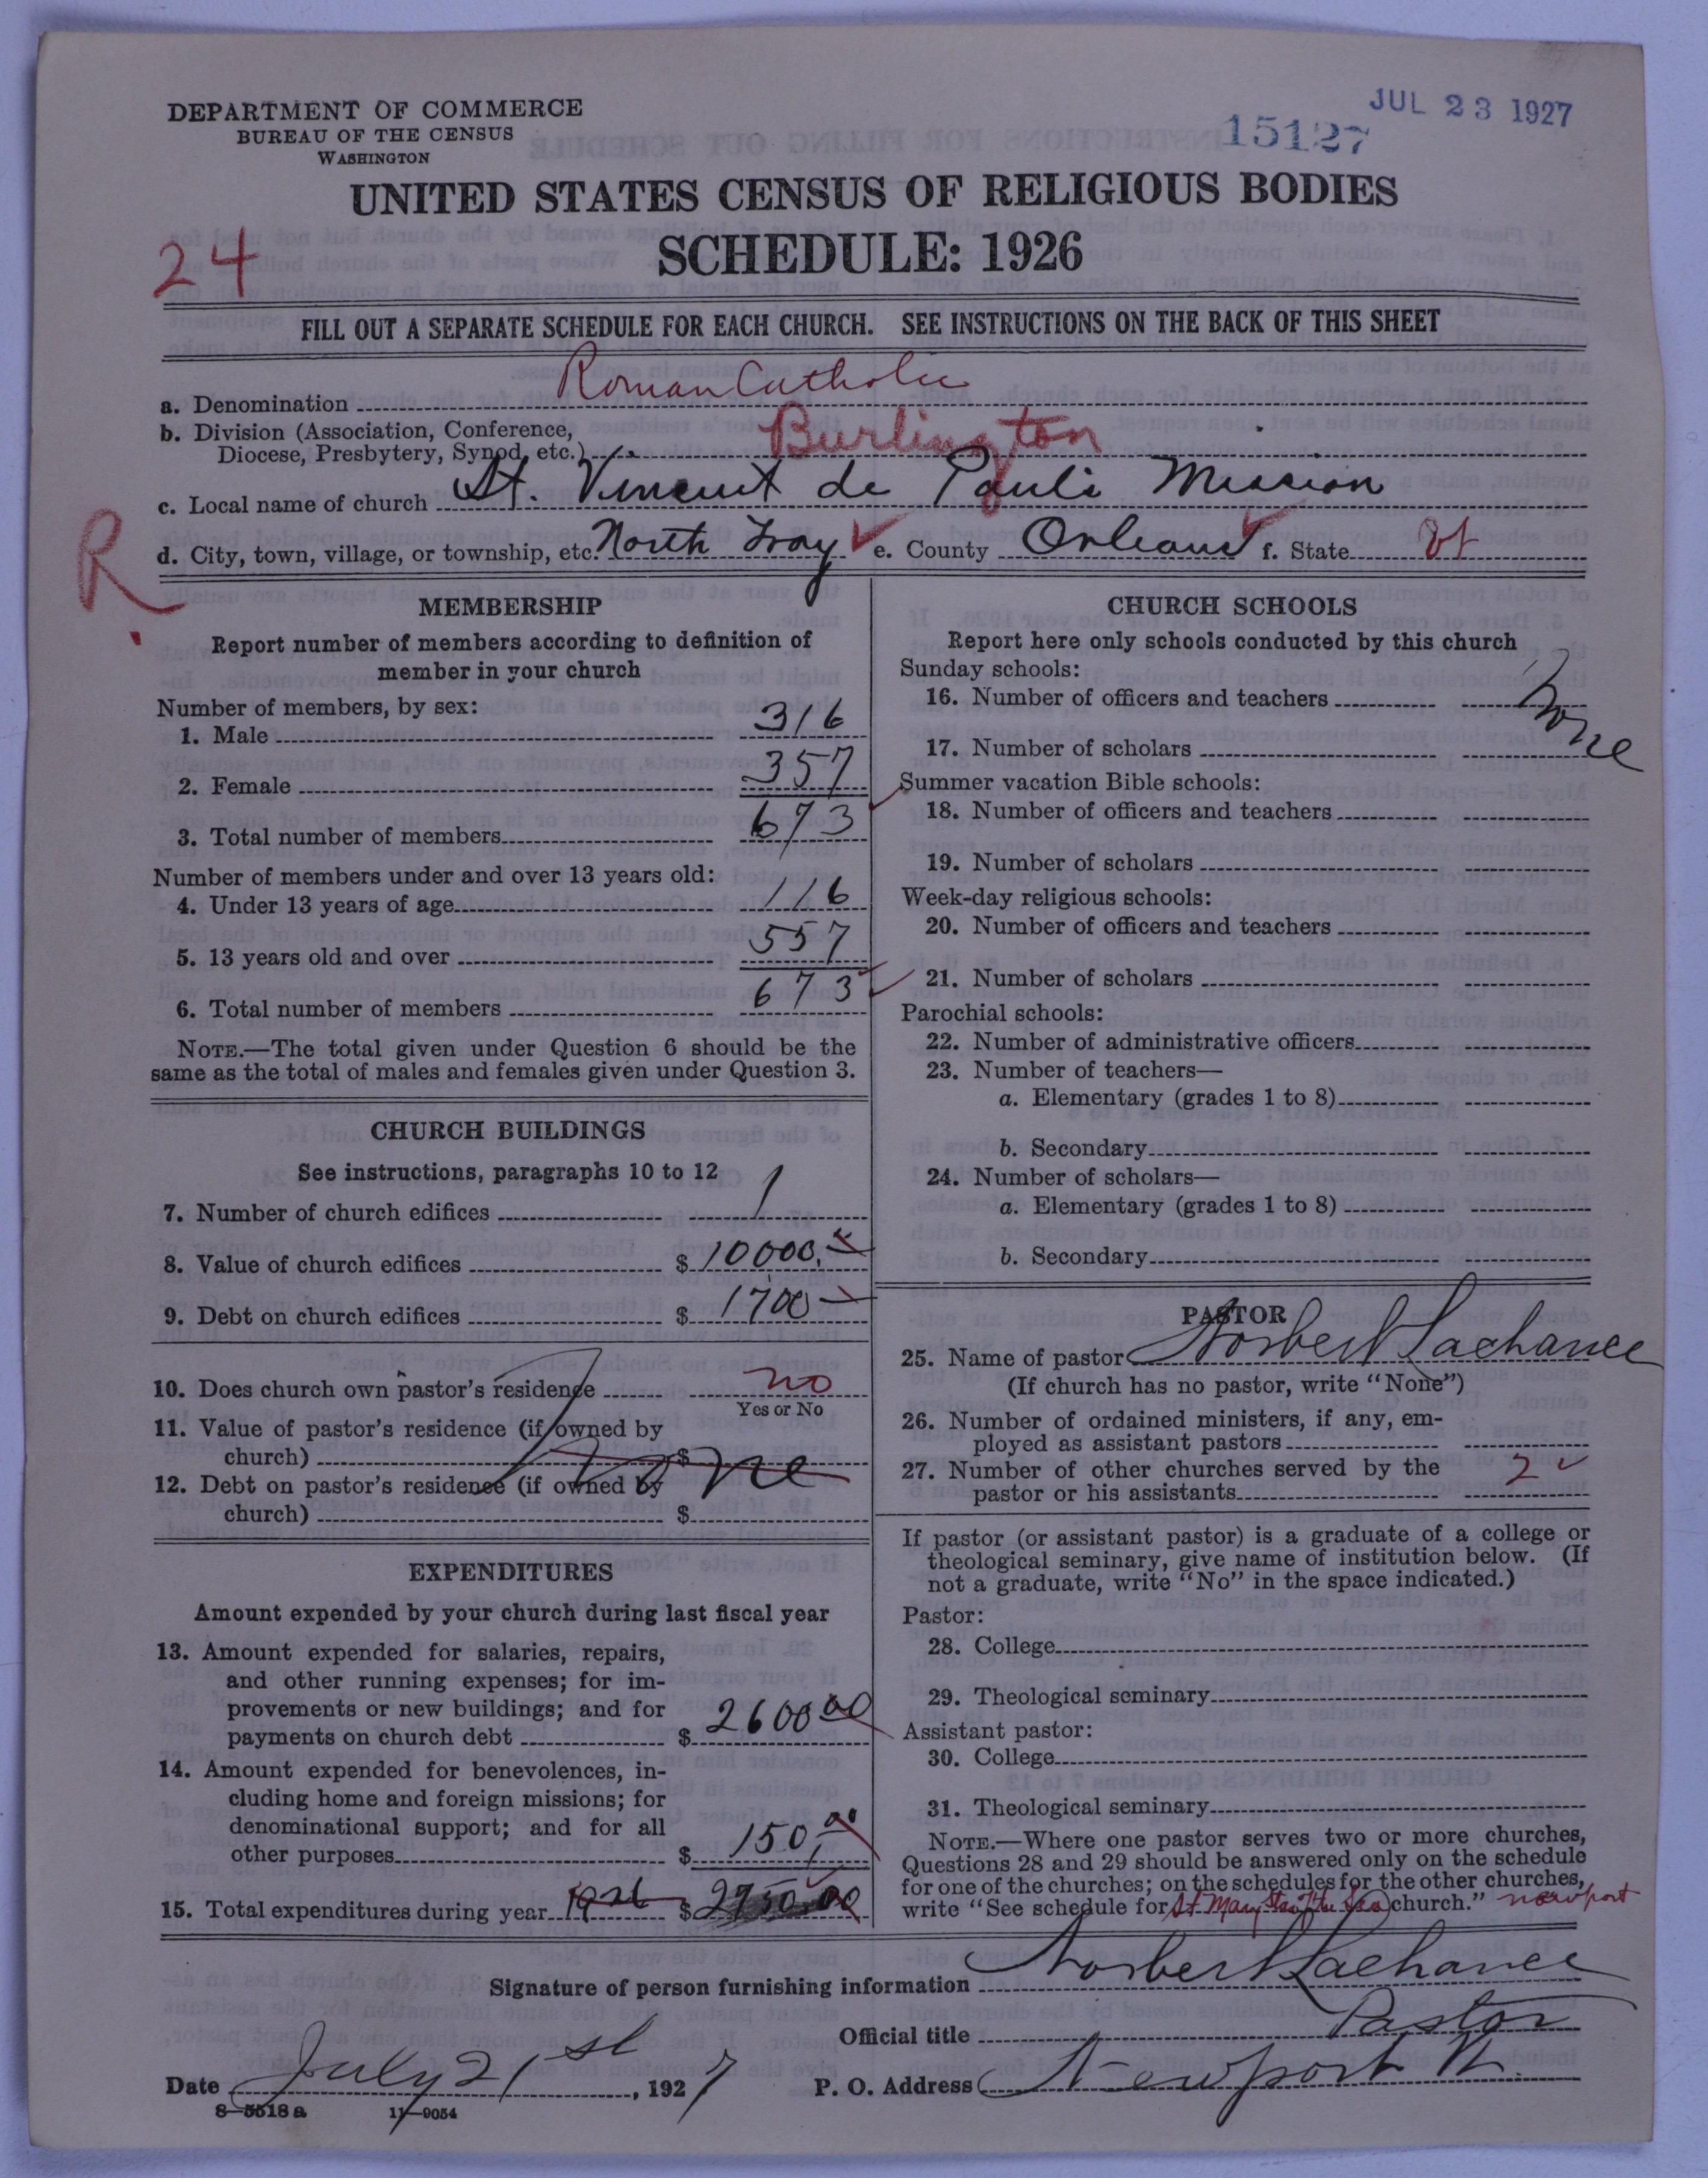 DEPARTMENT OF COMMERCE
BUREAU OF THE CENSUS
WASHINGTON
JUL 23 1927
15127
UNITED STATES CENSUS OF RELIGIOUS BODIES
SCHEDULE: 1926
24
FILL OUT A SEPARATE SCHEDULE FOR EACH CHURCH. SEE INSTRUCTIONS ON THE BACK OF THIS SHEET
a. Denomination Roman Catholic
b. Division (Association, Conference, Diocese, Presbytery, Synod, etc.) Burlington
c. Local name of church St. Vincent de Paul's Mission
d. City, town, village, or township, etc. North Troy e. County Orleans f. State Vt
R
MEMBERSHIP
Report number of members according to definition of
member in your church
Number of members, by sex:
1. Male 316
2. Female 357
3. Total number of members 673
Number of members under and over 13 years old:
4. Under 13 years of age 116
5. 13 years old and over 557
6. Total number of members 673
NOTE.—The total given under Question 6 should be the
same as the total of males and females given under Question 3.
CHURCH BUILDINGS
See instructions, paragraphs 10 to 12
7. Number of church edifices 1
8. Value of church edifices $ 10000.
9. Debt on church edifices $ 1700
10. Does church own pastor's residence no
Yes or No
11. Value of pastor's residence (if owned by
church) $ None
12. Debt on pastor's residence (if owned by
church) $
EXPENDITURES
Amount expended by your church during last fiscal year
13. Amount expended for salaries, repairs,
and other running expenses; for im-
provements or new buildings; and for
payments on church debt $ 2600 00
14. Amount expended for benevolences, in-
cluding home and foreign missions; for
denominational support; and for all
other purposes $ 150,00
15. Total expenditures during year 1926 $ 2750.00
CHURCH SCHOOLS
Report here only schools conducted by this church
Sunday schools:
16. Number of officers and teachers None
17. Number of scholars
Summer vacation Bible schools:
18. Number of officers and teachers
19. Number of scholars
Week-day religious schools:
20. Number of officers and teachers
21. Number of scholars
Parochial schools:
22. Number of administrative officers
23. Number of teachers—
a. Elementary (grades 1 to 8)
b. Secondary
24. Number of scholars—
a. Elementary (grades 1 to 8)
b. Secondary
PASTOR
25. Name of pastor Norbert Lachance
(If church has no pastor, write "None")
26. Number of ordained ministers, if any, em-
ployed as assistant pastors
27. Number of other churches served by the
pastor or his assistants 2
If pastor (or assistant pastor) is a graduate of a college or
theological seminary, give name of institution below. (If
not a graduate, write "No" in the space indicated.)
Pastor:
28. College
29. Theological seminary
Assistant pastor:
30. College
31. Theological seminary
NOTE.—Where one pastor serves two or more churches,
Questions 28 and 29 should be answered only on the schedule
for one of the churches; on the schedules for the other churches,
write "See schedule for St Mary Star of the Sea church." newport
Signature of person furnishing information Norbert Lachance
Official title Pastor
Date July 21st, 1927 P. O. Address Newport Vt.
8—5518a 11—9054